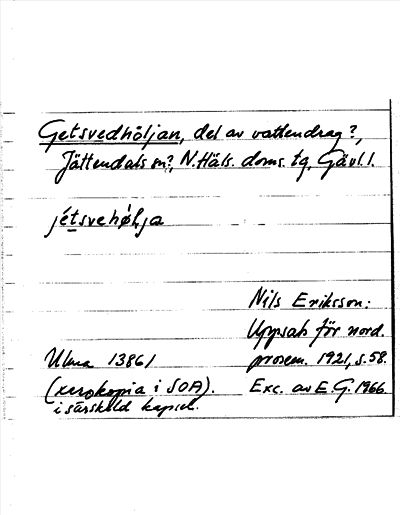 Getsvedhöljan, del av vattendrag?,
Jättendals sn?, N. Häls. doms. tg, Gävl. l.
jétsvehø̀lja
Nils Eriksson:
Uppsats för nord.
Ulma 13861 prosem. 1921, s. 58.
(xerokopia i SOA). Exc. av E. G. 1966.
i särskild kapsel.